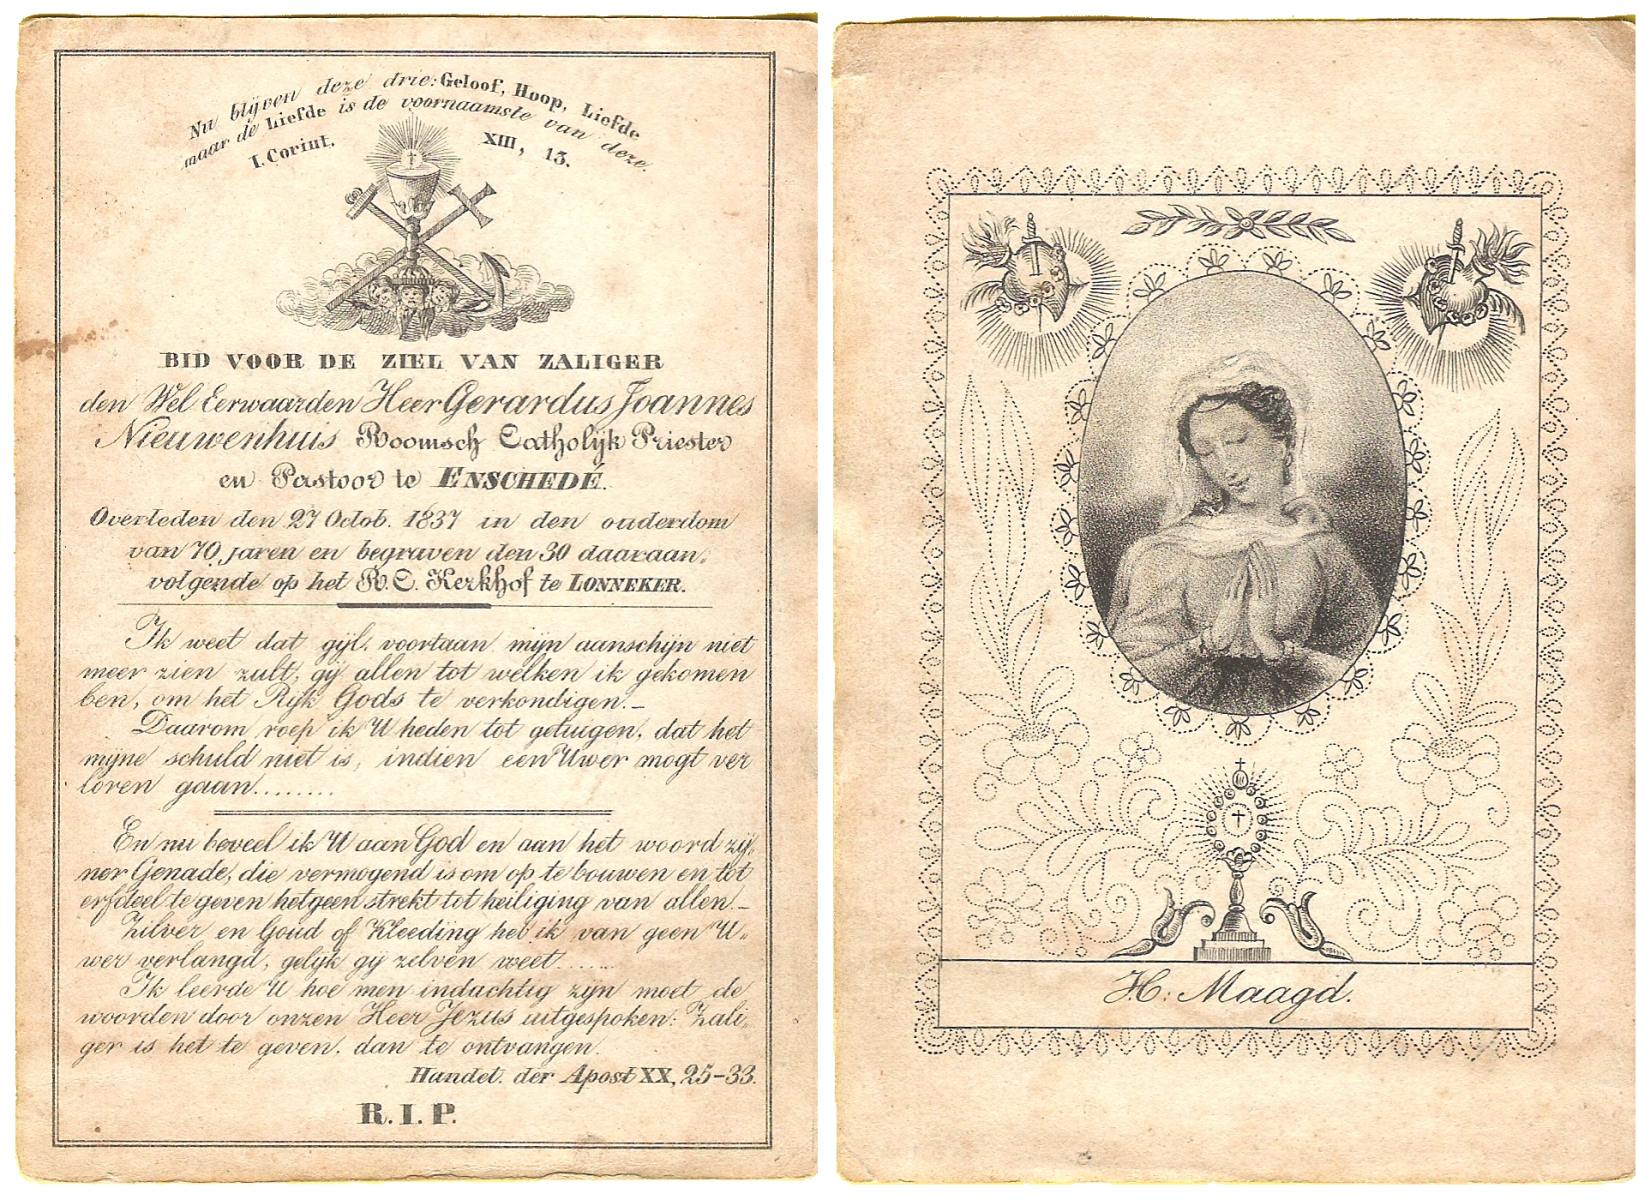 Nu blijven deze drie: Geloof, Hoop, Liefde
maar de Liefde is de voornaamste van deze.
I. Corint. XIII, 13.
BID VOOR DE ZIEL VAN ZALIGER
den Wel Eerwaarden Heer Gerardus Joannes
Nieuwenhuis Roomsch Catholijk Priester
en Pastoor te ENSCHEDÉ.
Overleden den 27 Octob. 1837 in den ouderdom
van 70 jaren en begraven den 30 daaraan„
volgende op het R. C. Kerkhof te LONNEKER.
Ik weet dat gijl. voortaan mijn aanschijn niet
meer zien zult, gij allen tot welken ik gekomen
ben, om het Rijk Gods te verkondigen._
Daarom roep ik U heden tot getuigen, dat het
mijne schuld niet is, indien een Uwer mogt ver
loren gaan........
En nu beveel ik U aan God en aan het woord zij„
ner Genade, die vermogend is om op te bouwen en tot
erfdeel te geven hetgeen strekt tot heiliging van allen._
Zilver en Goud of Kleeding heb ik van geen U„
wer verlangd, gelijk gij zelven weet......
Ik leerde U hoe men indachtig zijn moet de
woorden door onzen Heer Jezus uitgesproken: Zali„
ger is het te geven, dan te ontvangen.
Handel. der Apost XX, 25-33.
R.I.P.
H: Maagd.